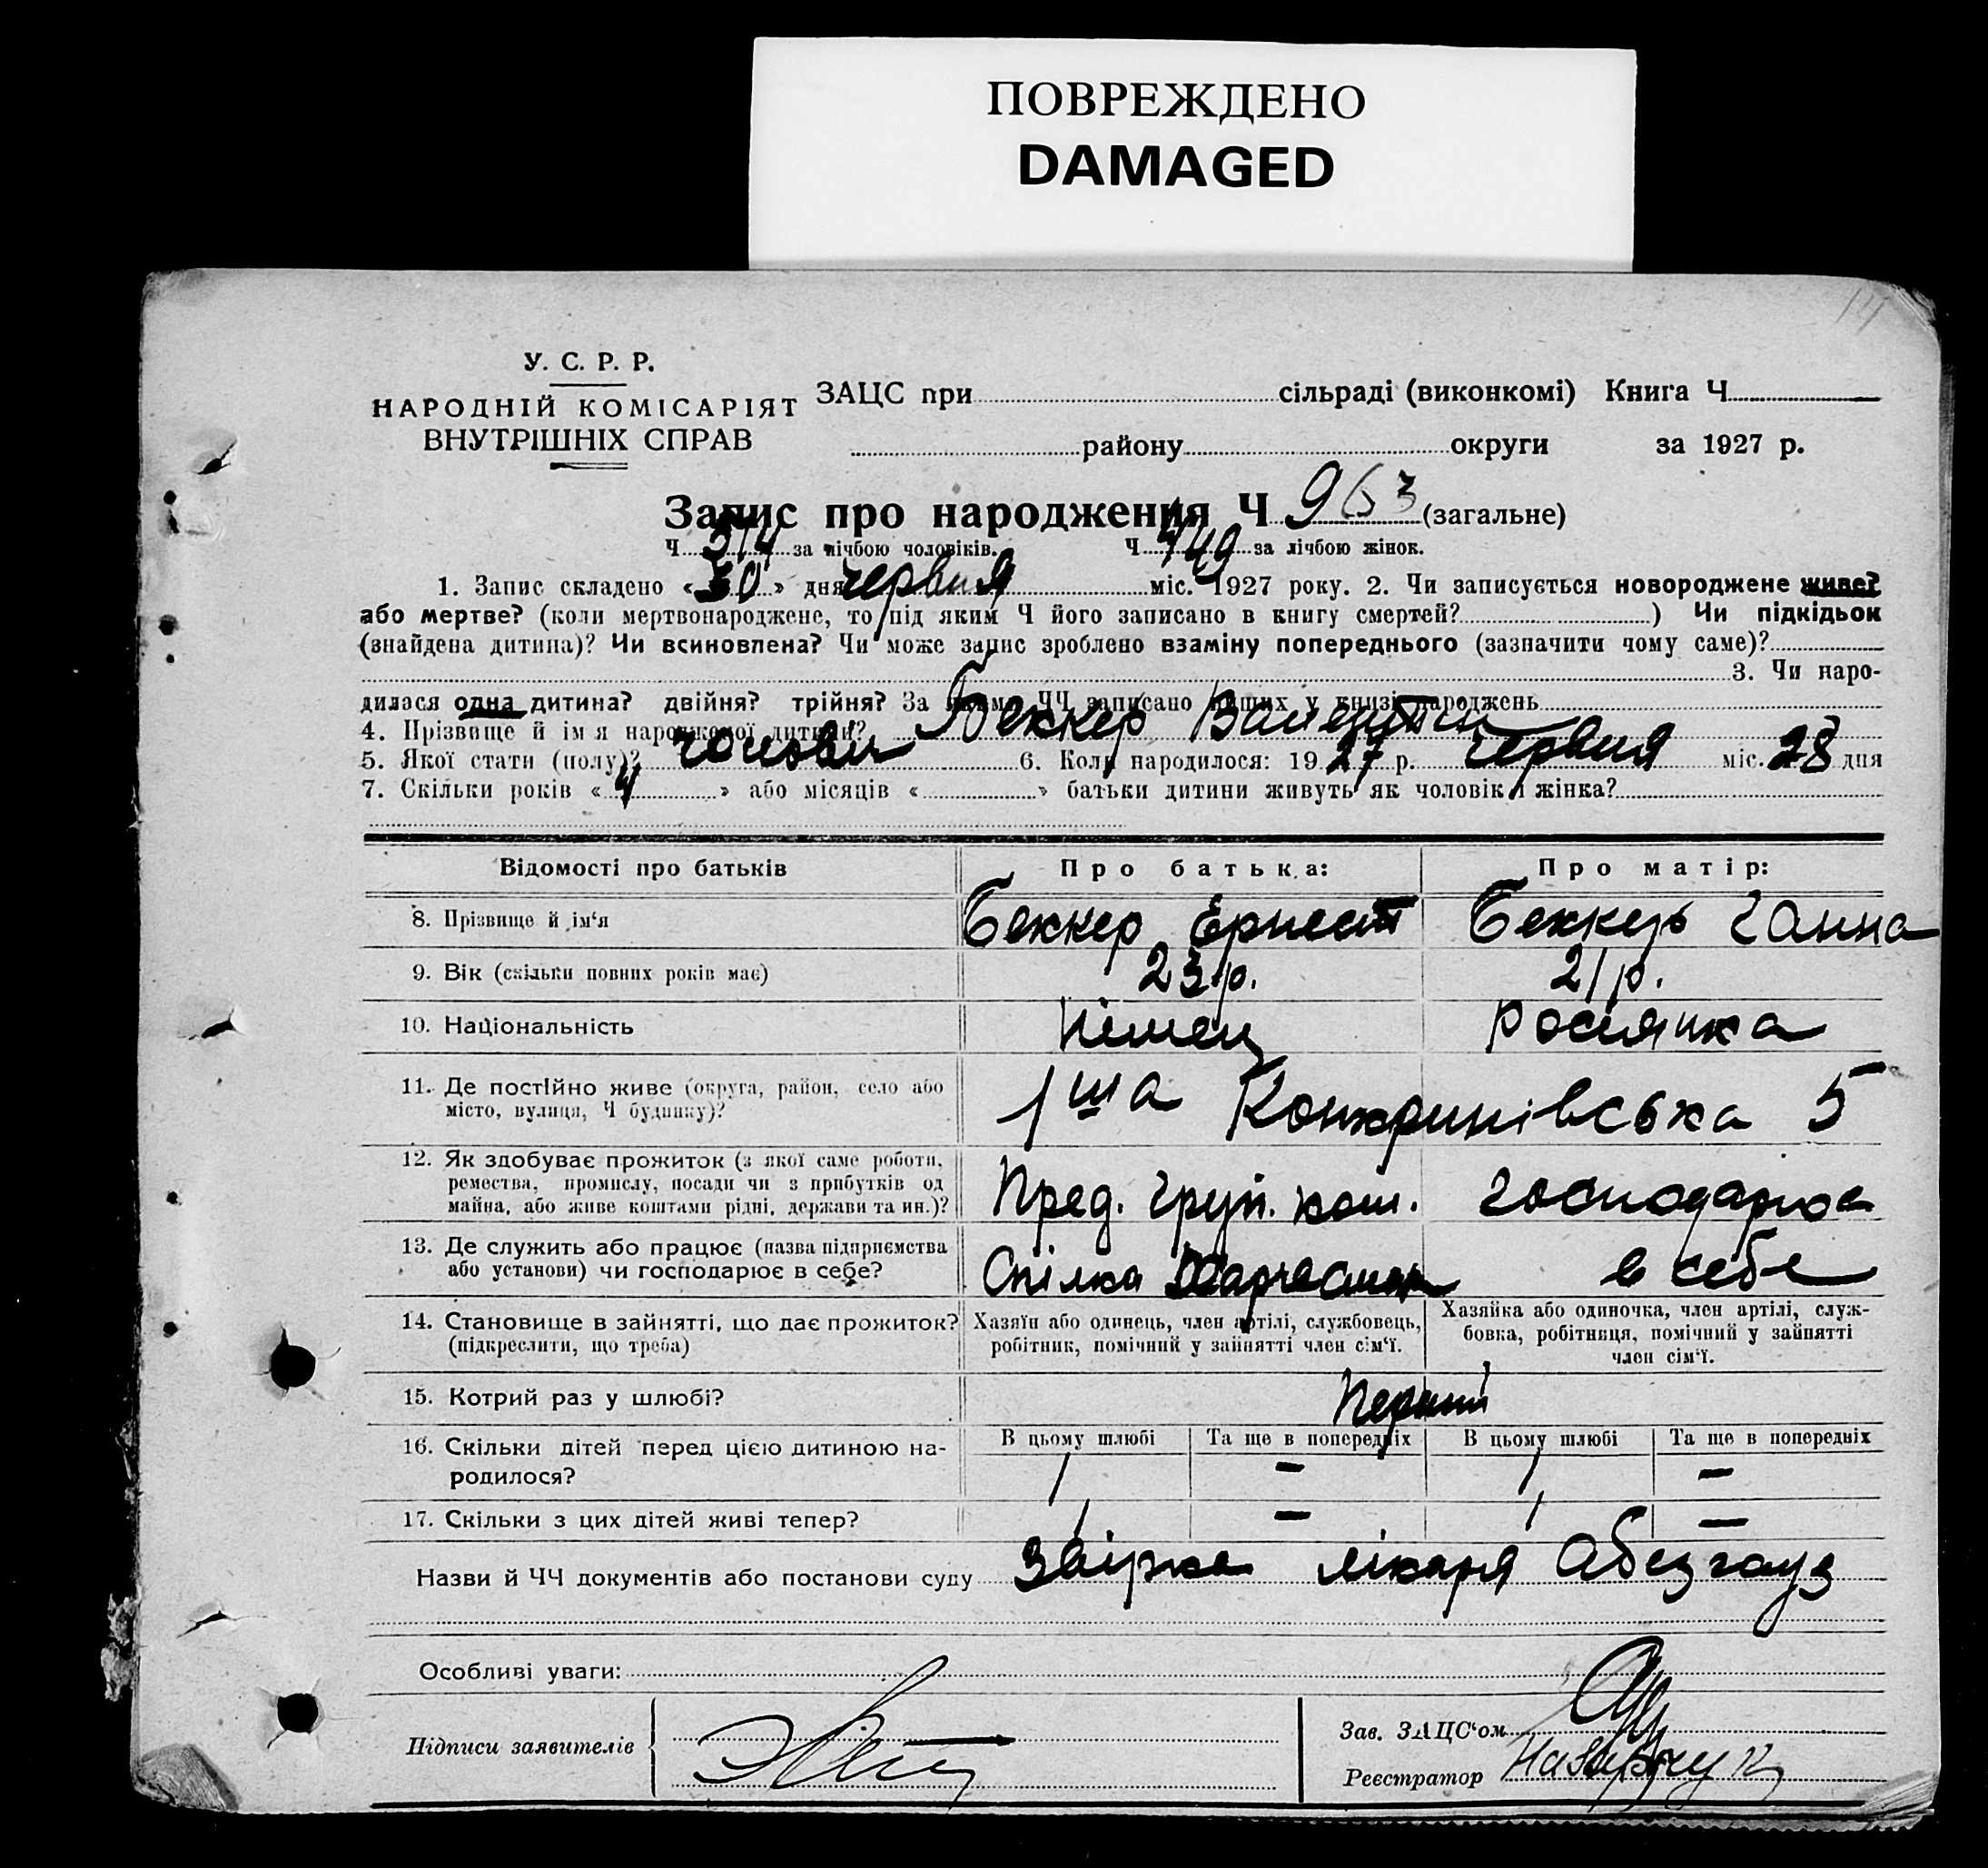 ПОВРЕЖДЕНО
DAMAGED
У. С. Р. Р.
НАРОДНІЙ КОМІСАРІЯТ
ВНУТРІШНІХ СПРАВ
ЗАЦС при сільраді (виконкомі) Книга Ч.
району округи за 1927 р.
Запис про народження Ч 963 (загальне)
Ч. 514 за лічбою чоловіків. Ч. 449 за лічбою жінок.
1. Запис складено «30» дня червня міс. 1927 року. 2. Чи записується новороджене живе?
або мертве? (коли мертвонароджене, то під яким Ч його записано в книгу смертей? ) Чи підкідьок
(знайдена дитина)? Чи всиновлена? Чи може запис зроблено взаміну попереднього (зазначити чому саме)?
3. Чи наро-
дилася одна дитина? двійня? трійня? За якими ЧЧ записано инших у книзі народжень
4. Прізвище й ім'я народженої дитини? Беккер Валентин
5. Якої стати (полу)? чоловіч 6. Коли народилося: 1927 р. червня міс. 28 дня
7. Скільки років « 4 » або місяців « » батьки дитини живуть як чоловік і жінка?
Відомості про батьків Про батька: Про матір:
8. Прізвище й ім'я Беккер Ернест Беккер Ганна
9. Вік (скільки повних років має) 23 р. 21 р.
10. Національність Німець Росіянка
11. Де постійно живе (округа, район, село або
місто, вулиця, Ч будинку)? 1ша Конкринівська 5
12. Як здобуває прожиток (з якої саме роботи,
ремества, промислу, посади чи з прибутків од
майна, або живе коштами рідні, держави та ин.)? Пред. груп. ком. господарює
13. Де служить або працює (назва підприємства
або установи) чи господарює в себе? Спілка Харчосмак в себе
14. Становище в зайнятті, що дає прожиток?
(підкреслити, що треба)
Хазяїн або одинець, член артілі, службовець,
робітник, помічний у зайнятті член сім'ї.
Хазяйка або одиночка, член артілі, служ-
бовка, робітниця, помічний у зайнятті
член сім'ї.
15. Котрий раз у шлюбі? Перший
16. Скільки дітей перед цією дитиною на-
родилося?
В цьому шлюбі Та ще в попередніх В цьому шлюбі Та ще в попередніх
1 – 1 –
17. Скільки з цих дітей живі тепер? 1 – 1 –
Назви й ЧЧ документів або постанови суду Звірка лікаря Абезгауз
Особливі уваги:
Підписи заявителів
Зав. ЗАЦС'ом
Реєстратор Назарчук